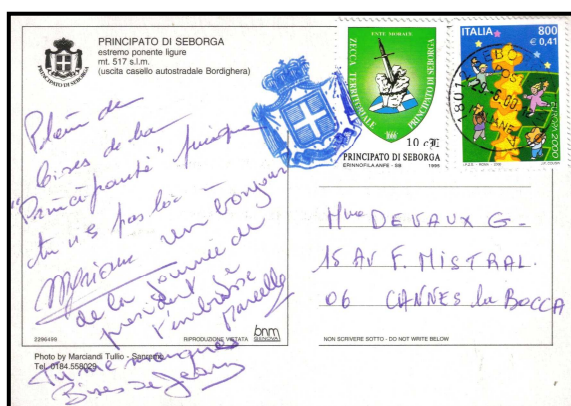 PRINCIPATO DI SEBORGA
estremo ponente ligure
mt. 517 s.l.m.
(uscita casello autostradale Bordighera)
PRINCIPATO DI SEBORGA
ENTE MORALE
ZECCA TERRITORIALE
PRINCIPATO DI SEBORGA
10 c£
PRINCIPATO DI SEBORGA
ERINNOFILA ANFE - SB 1995
ITALIA 800
€ 0,41
EUROPA 2000
I.P.Z.S. - ROMA - 2000
Plein de
bises de la
"Principauté" puisque
tu n'es pas là
Myriam un bonjour
de la journée du
président je
t'embrasse
Marcelle
Tu me manques
Bises de Jean
Mme DEVAUX G-
15 AV F. MISTRAL.
06 CANNES la BOCCA
2286499
RIPRODUZIONE VIETATA
bnm
GENOVA
NON SCRIVERE SOTTO - DO NOT WRITE BELOW
Photo by Marciandi Tullio - Sanremo
Tel. 0184.558029